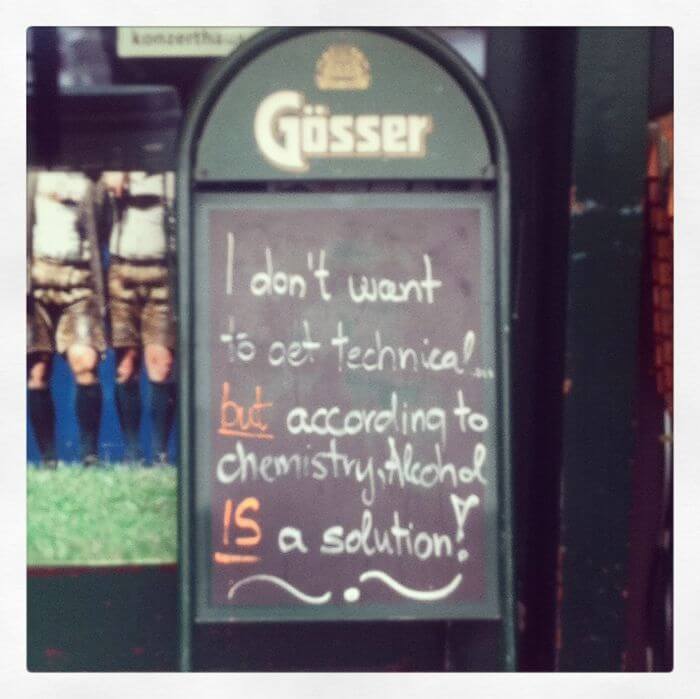 konzerthaus
Gösser
I don't want
to get technical...
but according to
chemistry, Alcohol
IS a solution!